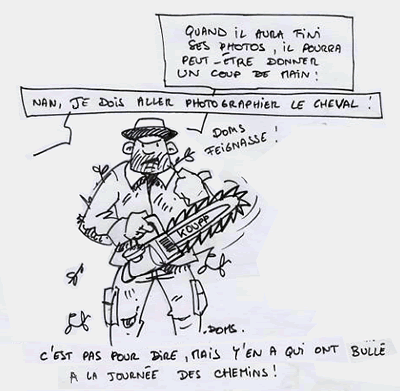 QUAND IL AURA FINI
SES PHOTOS, IL POURRA
PEUT-ÊTRE DONNER
UN COUP DE MAIN!
NAN, JE DOIS ALLER PHOTOGRAPHIER LE CHEVAL!
DOMS
FEIGNASSE!
KOUPP
.DOMS.
C'EST PAS POUR DIRE, MAIS Y'EN A QUI ONT BULLÉ
A LA JOURNÉE DES CHEMINS!